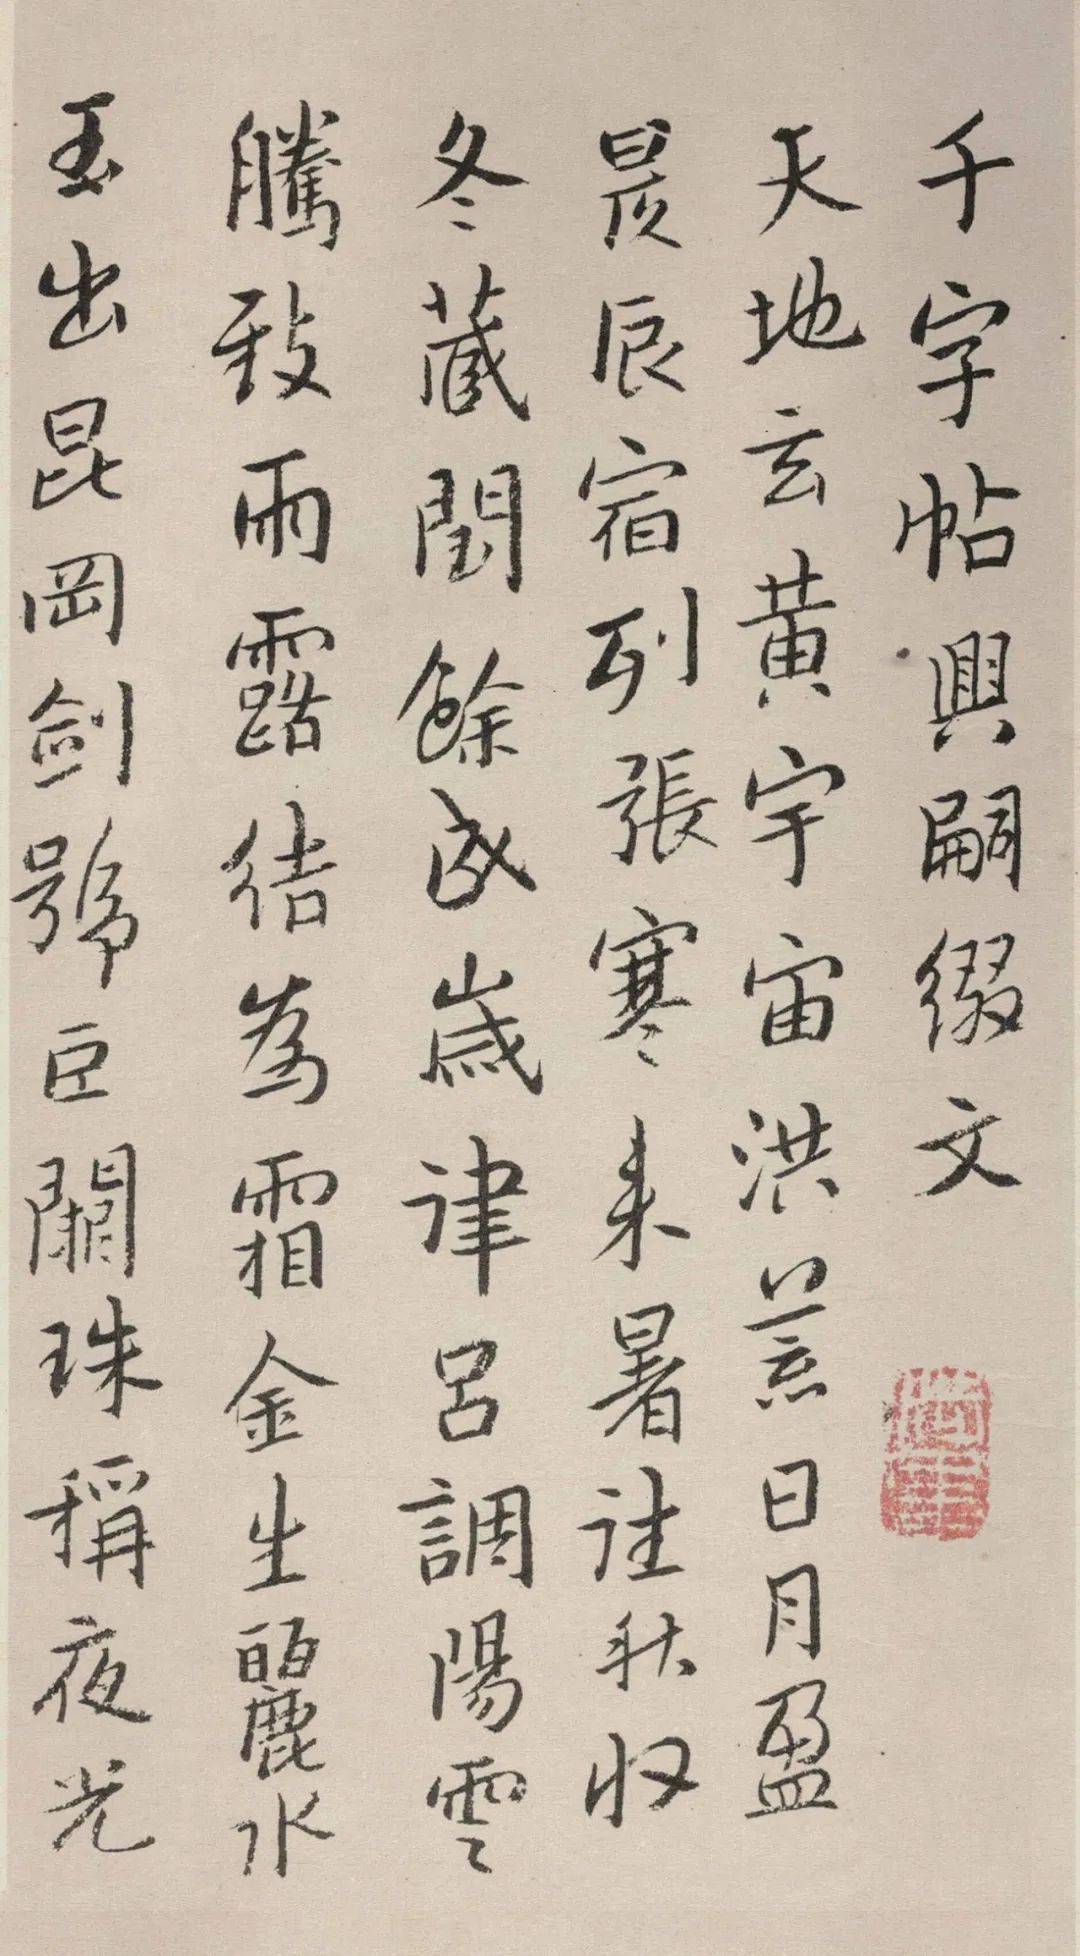 千字帖興嗣綴文
天地玄黃宇宙洪荒日月盈
昃辰宿列張寒来暑往秋收
冬藏閏餘成歲律呂調陽雲
騰致雨露結為霜金生麗水
玉出昆岡剑號巨闕珠稱夜光